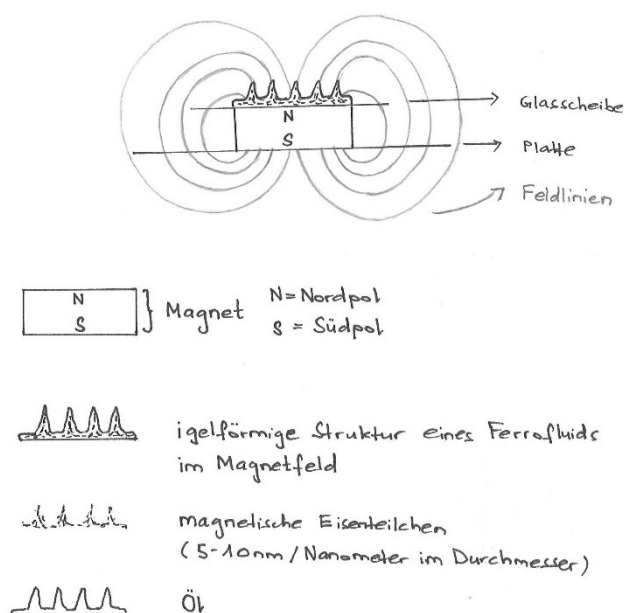 Glasscheibe
N
S
Platte
Feldlinien
N
S
Magnet
N = Nordpol
S = Südpol
igelförmige Struktur eines Ferrofluids
im Magnetfeld
magnetische Eisenteilchen
(5-10nm / Nanometer im Durchmesser)
Öl